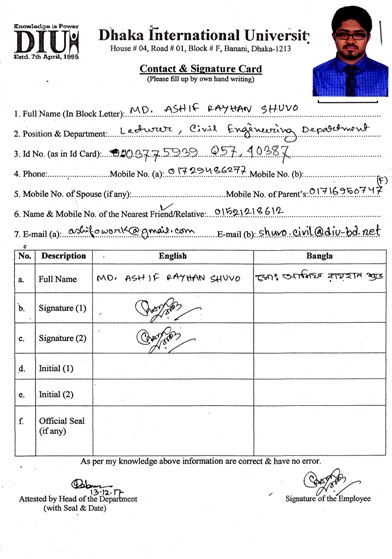 Knowledge is Power
DIU
Estd. 7th April, 1995
Dhaka International University
House # 04, Road # 01, Block # F, Banani, Dhaka-1213
Contact & Signature Card
(Please fill up by own hand writing)
1. Full Name (In Block Letter): MD. ASHIF RAYHAN SHUVO
2. Position & Department: Lecturer, Civil Engineering Department
3. Id No. (as in Id Card): 057, 40387
4. Phone: Mobile No. (a): 01729486277 Mobile No. (b):
(F)
5. Mobile No. of Spouse (if any): Mobile No. of Parent's: 01716950747
6. Name & Mobile No. of the Nearest Friend/Relative: 01521218612
7. E-mail (a): ashifowork@gmail.com E-mail (b): shuvo.civil@diu-bd.net
No. Description English Bangla
a. Full Name MD. ASHIF RAYHAN SHUVO মোঃ আসিফ রায়হান শুভ
b. Signature (1)
c. Signature (2)
d. Initial (1)
e. Initial (2)
f. Official Seal
(if any)
As per my knowledge above information are correct & have no error.
13.12.17
Attested by Head of the Department Signature of the Employee
(with Seal & Date)